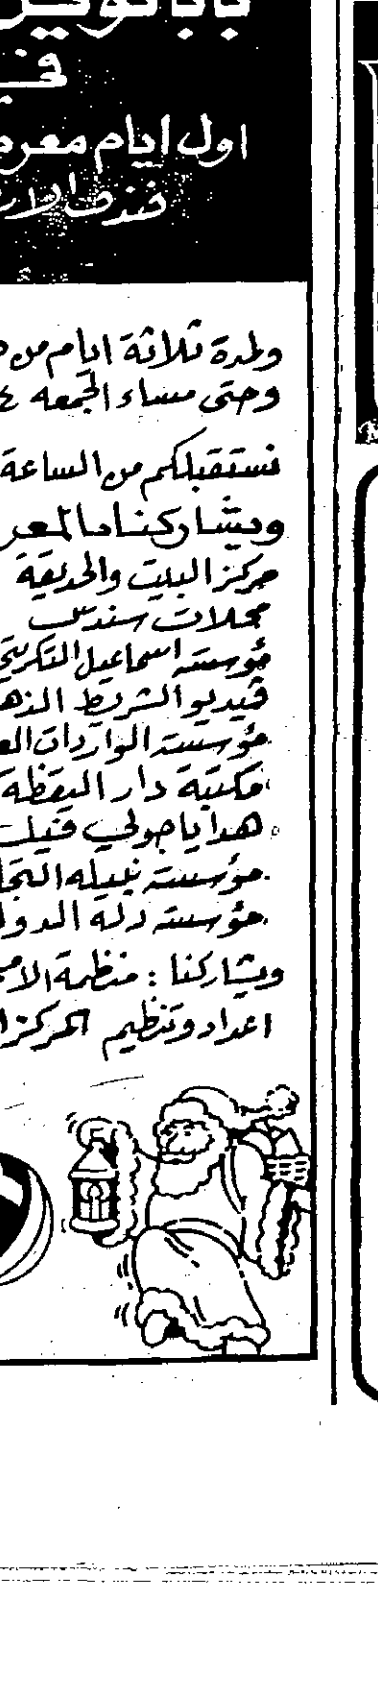 بابا نويل
في
اول ايام معر
فندق
ولمدة ثلاثة ايام من
وحتى مساء الجمعه ٤
نستقبلكم من الساعة
ويشاركنا بالمعر
مركز البيت والحديقة
محلات سندس
مؤسسة اسماعيل التكريتي
فيديو الشريط الذه
مؤسسة الواردات الع
مكتبة دار اليقظة
هدايا جولي فيل
مؤسسة نبيله النجا
مؤسسة دله الدو
ويشاركنا : منظمة الام
اعداد وتنظيم المركز ا